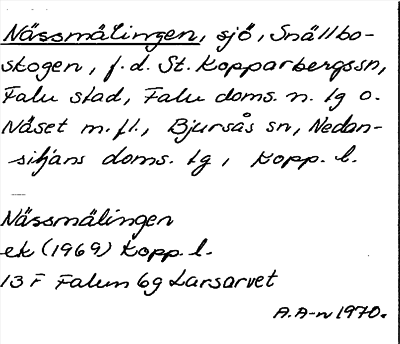 Nässmälingen, sjö, Snällbo-
skogen, f.d. St. Kopparbergs sn,
Falu stad, Falu doms. n. tg o.
Näset m.fl., Bjursås sn, Nedan-
siljans doms. tg, Kopp. l.
Nässmälingen
ek (1969) Kopp. l.
13 F Falun 6g Larsarvet
A.A-n 1970.